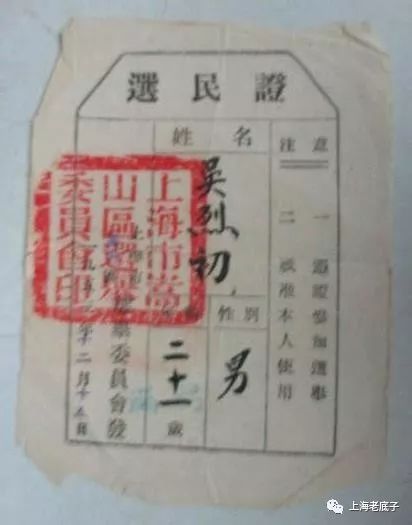 選民證
注意
一 憑證參加選舉
二 祇准本人使用
姓名
吳烈初
性別
男
二十一歲
上海市嵩
山區選舉
委員會印
舉委員會發
年十二月十五日
上海老底子